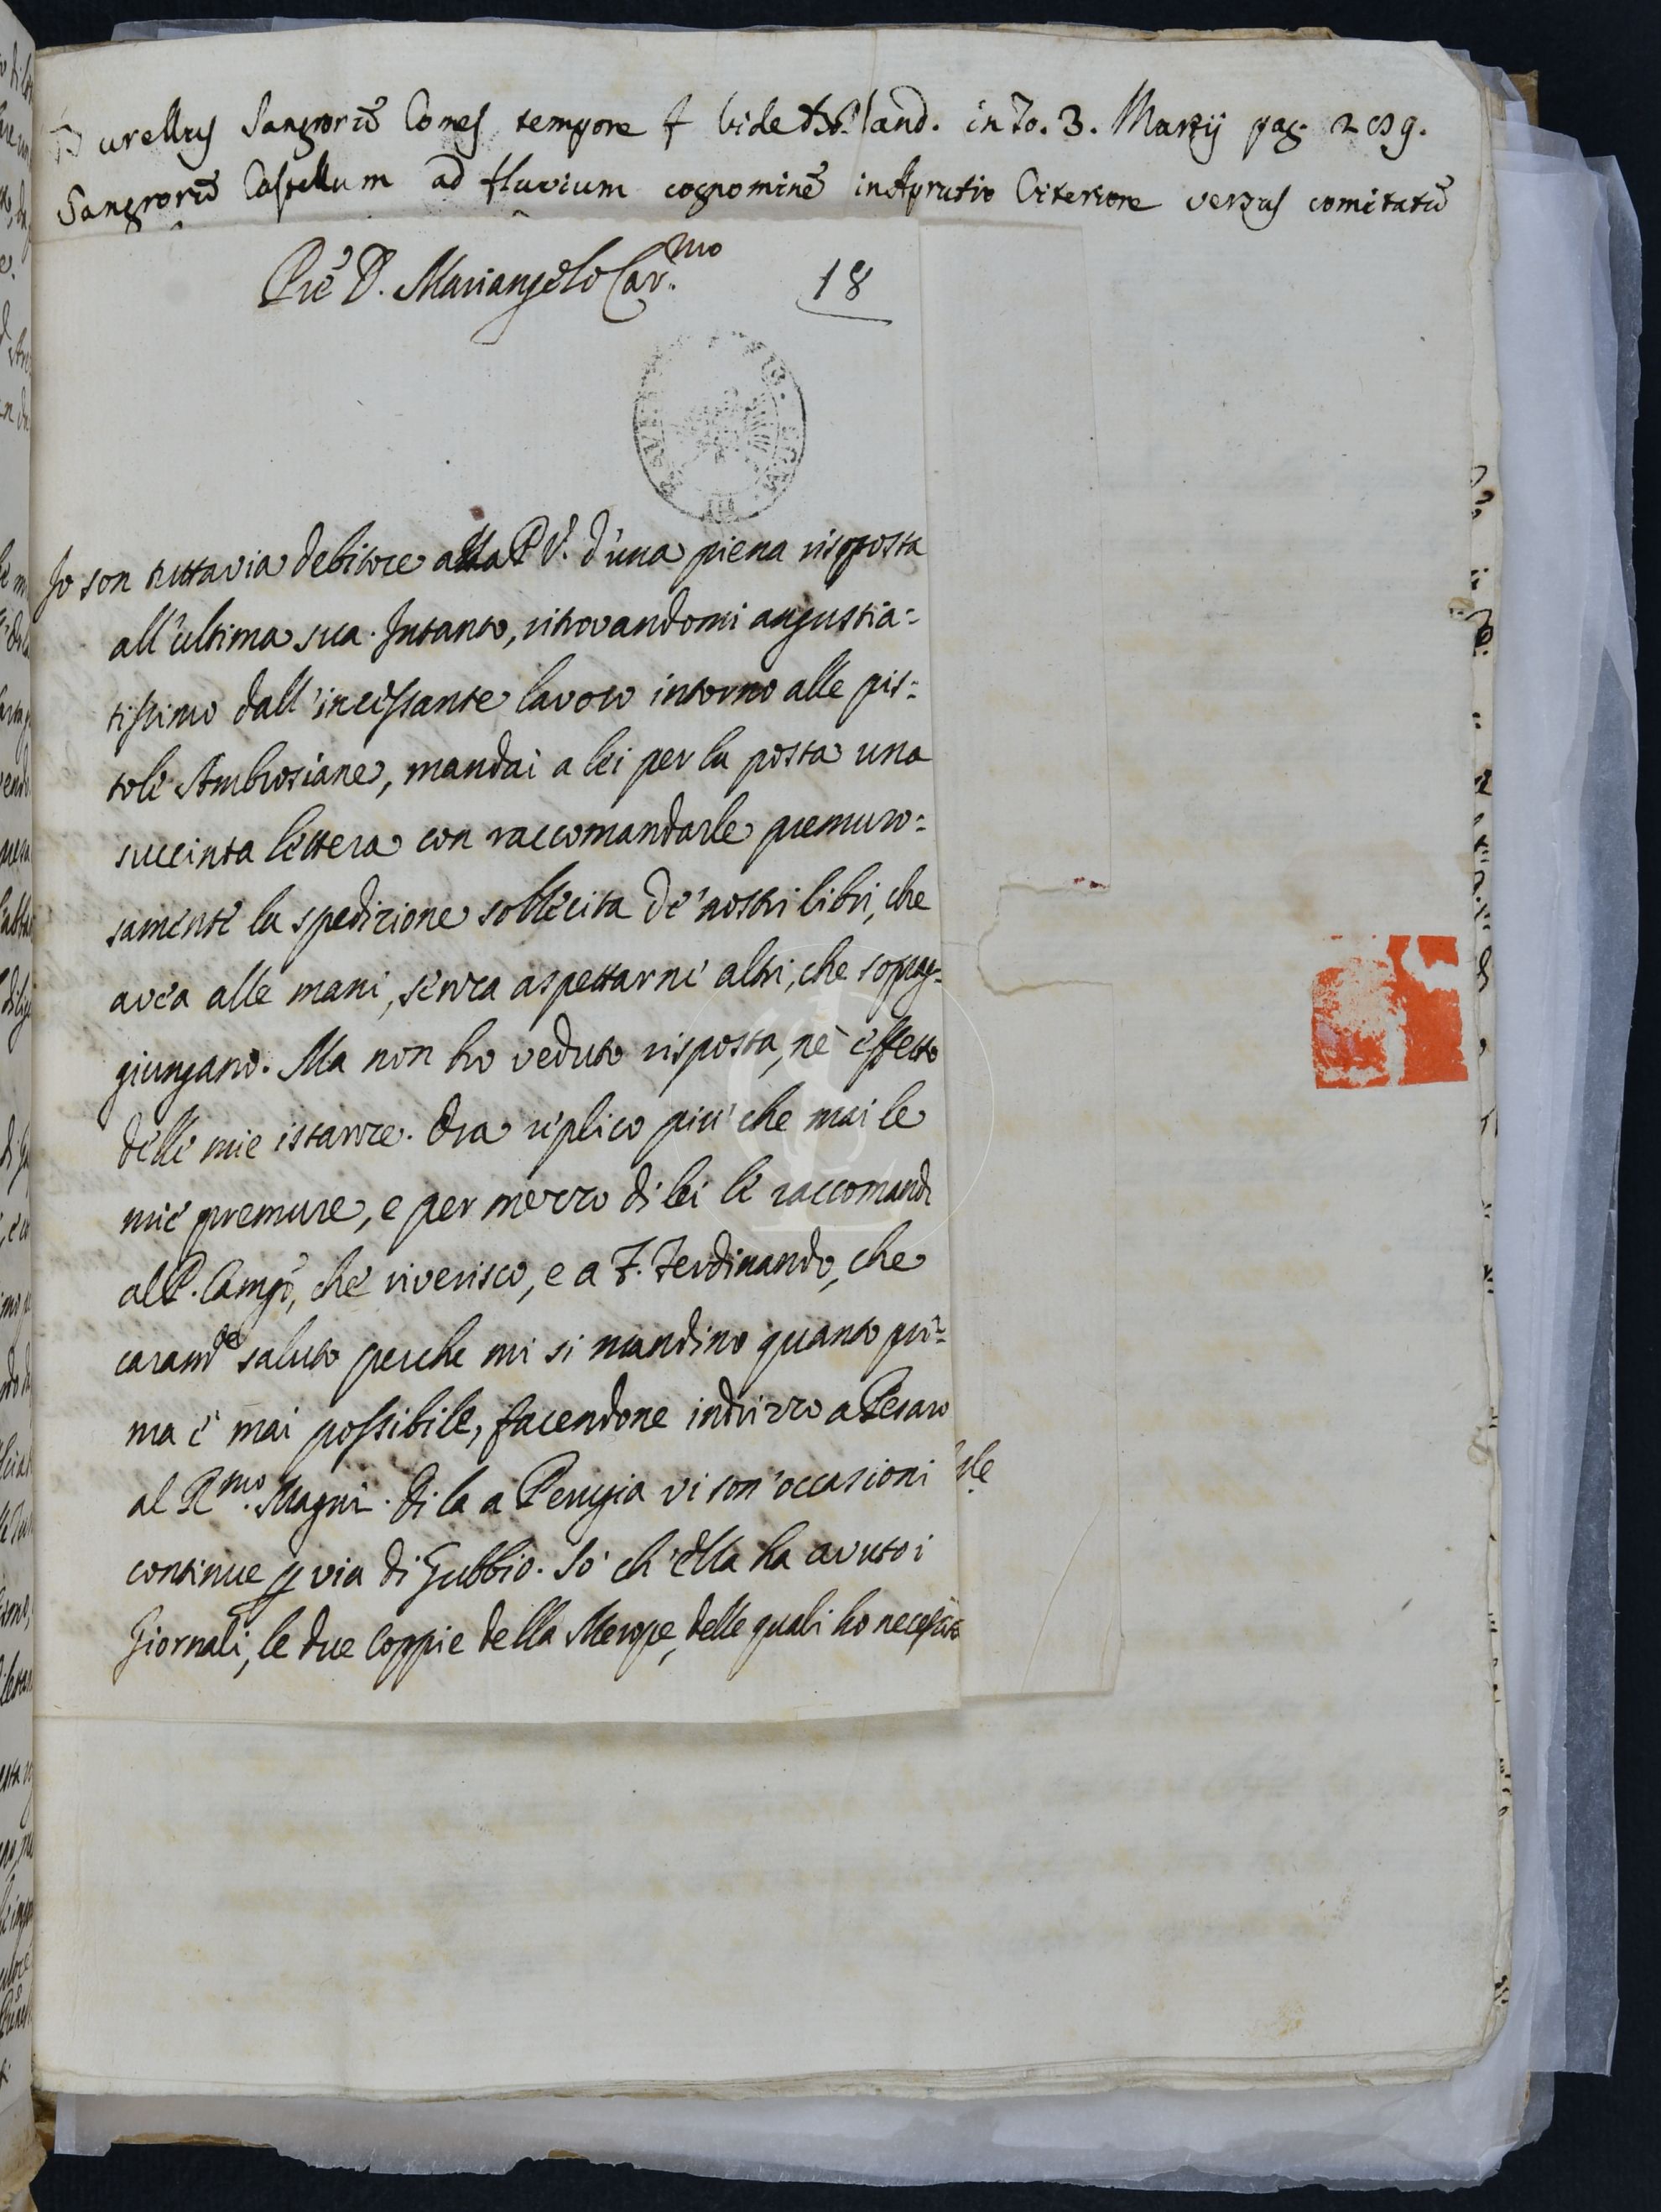 Burellus Sangrorũ Comes tempore f vide Bolland. in To. 3. Martij pag. 209.
Sangrorũ Castellum ad fluvium cognominẽ in Aprutio Citeriore versus comitatũ
Prẽ D. Mariangelo Car.mo
18
Io son tuttavia debitore alla P V. d'una piena risposta
all'ultima sua. Intanto, ritrovandomi angustia=
tissimo dall'incessante lavoro intorno alle pis=
tole Ambrosiane, mandai a lei per la posta una
succinta lettera con raccomandarle premuro=
samente la spedizione sollecita de' nostri libri, che
avea alle mani, senza aspettarne altri, che soprag=
giungano. Ma non ho veduto risposta, nè effetto
delle mie istanze. Ora replico più che mai le
mie premure, e per mezzo di lei le raccomando
al P. Campi, che riverisco, e a F. Ferdinando, che
caramte saluto perche mi si mandino quanto pri=
ma è mai possibile, facendone indrizzo a Pesaro
al Rmo. Magni. Di la a Perugia vi son' occasioni
continue p via di Gubbio. So ch'ella ha avuto i
Giornali, le due Coppie della Merope, delle quali ho necessità